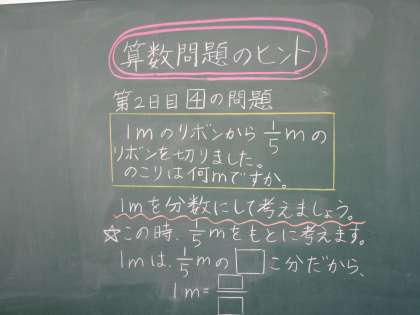 算数問題のヒント
第2日目④の問題
1mのリボンから1/5mの
リボンを切りました。
のこりは何mですか。
1mを分数にして考えましょう。
☆この時、1/5mをもとに考えます。
1mは、1/5mの□こ分だから、
1m=□/□